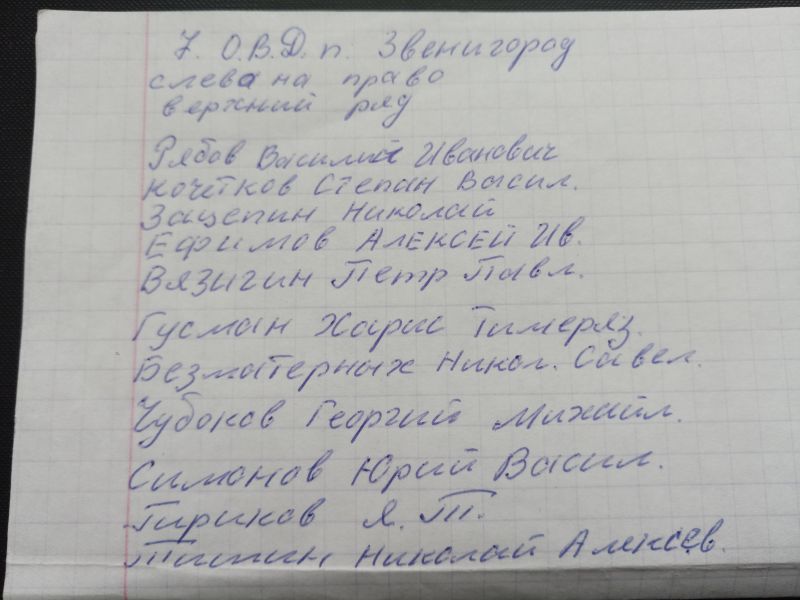 7. О.В.Д. п. Звенигород
слева на право
верхний ряд
Рябов Василий Иванович
Кочетков Степан Васил.
Зацепин Николай
Ефимов Алексей Ив.
Вязигин Петр Павл.
Гусман Харис Тимеряз.
Безматерных Никол. Савел.
Чубоков Георгий Михайл.
Симонов Юрий Васил.
Гириков Я. Т.
Николай Алексев.